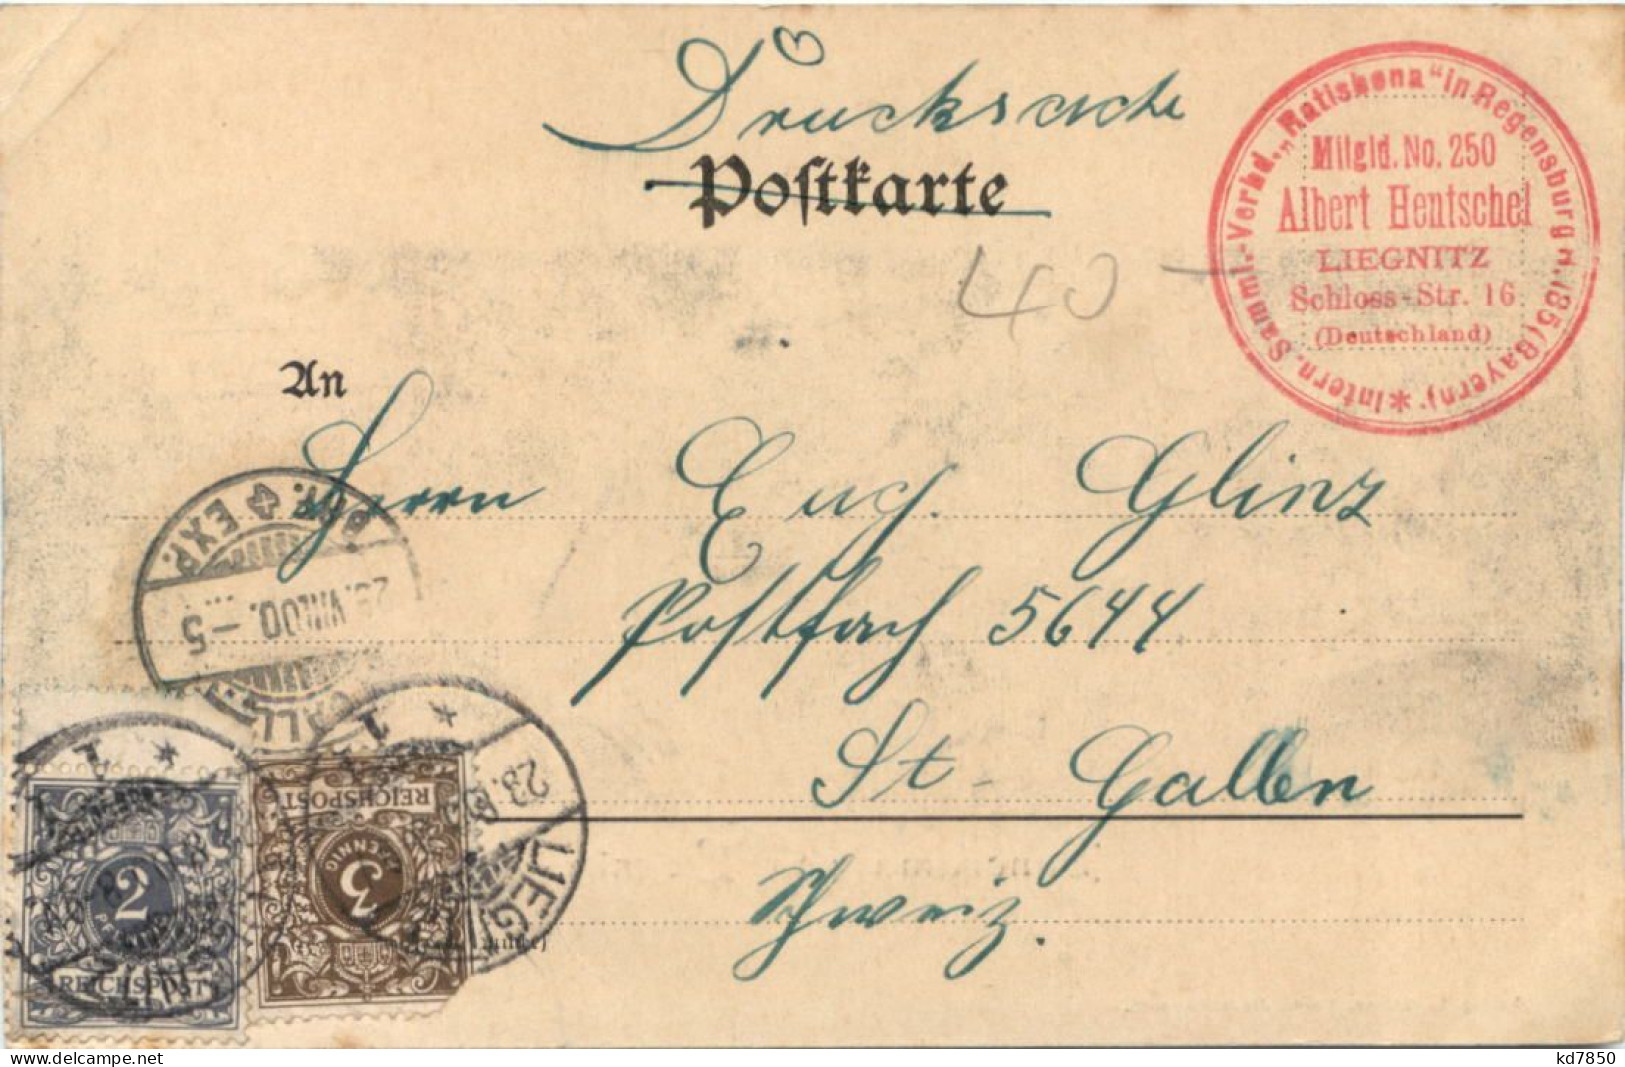 Drucksache
Postkarte
Intern. Samml.-Verbd. „Ratisbona" in Regensburg H. 185 (Bayern) *
Mitgld. No. 250
Albert Hentschel
LIEGNITZ
Schloss-Str. 16
(Deutschland)
40 –
An
Herrn Eug. Glinz
Postfach 5644
St. Gallen
Schweiz.
BR. 4 EXP.
VIII.00. – 5
GALL
1 *
23.
LIEGNITZ
1 *
REICHSPOST
3
PFENNIG
2
REICHSPOST
kd7850